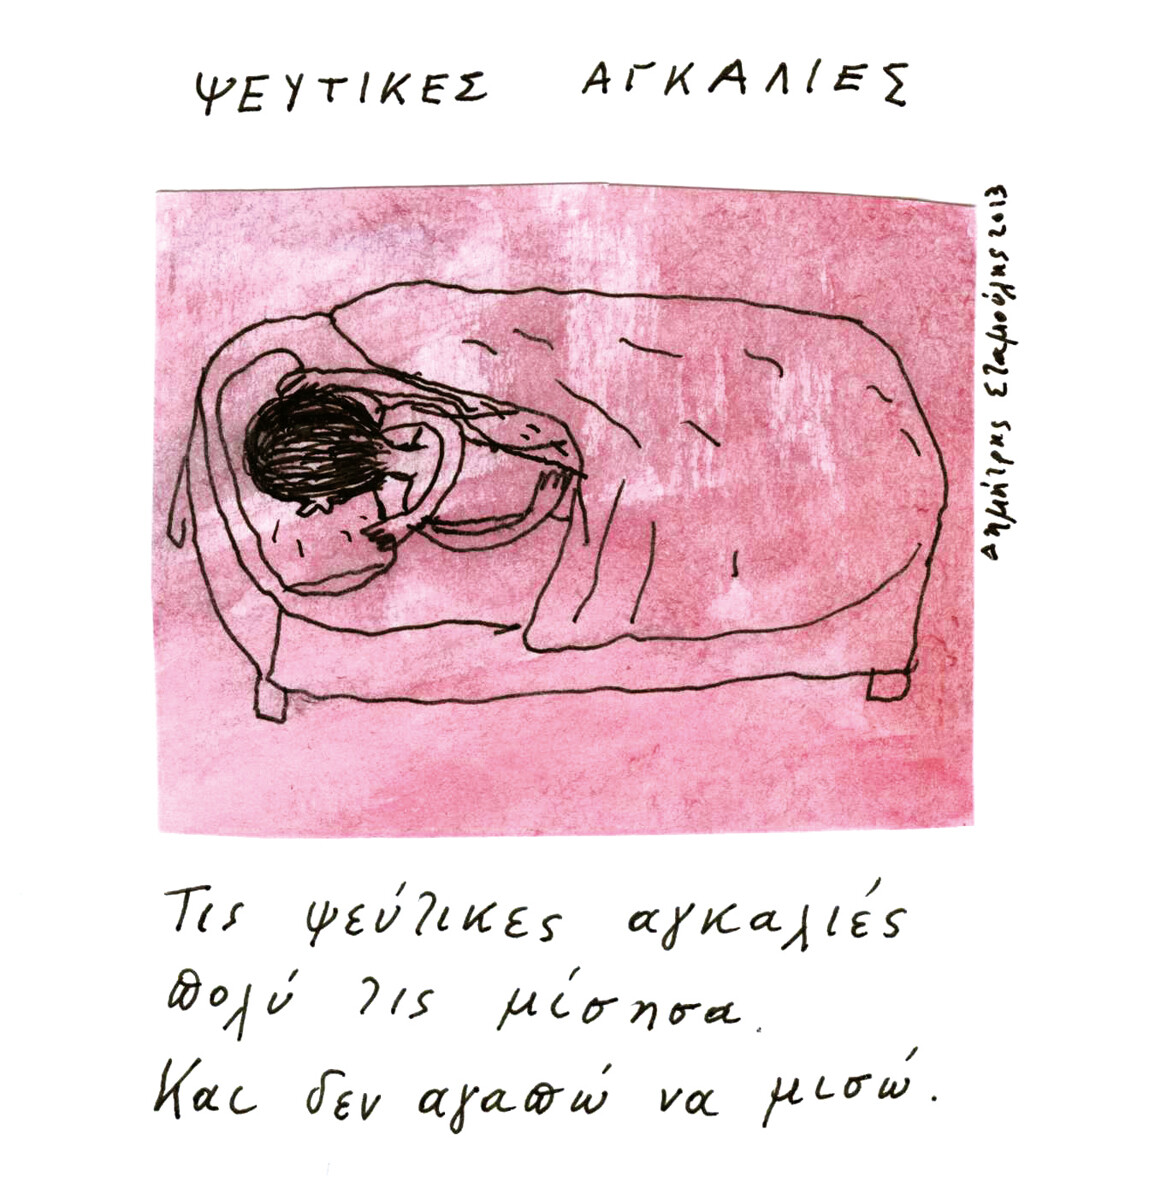 ΨΕΥΤΙΚΕΣ ΑΓΚΑΛΙΕΣ
Δημήτρης Σταμούλης 2013
Τις ψεύτικες αγκαλιές
πολύ τις μίσησα.
Και δεν αγαπώ να μισώ.